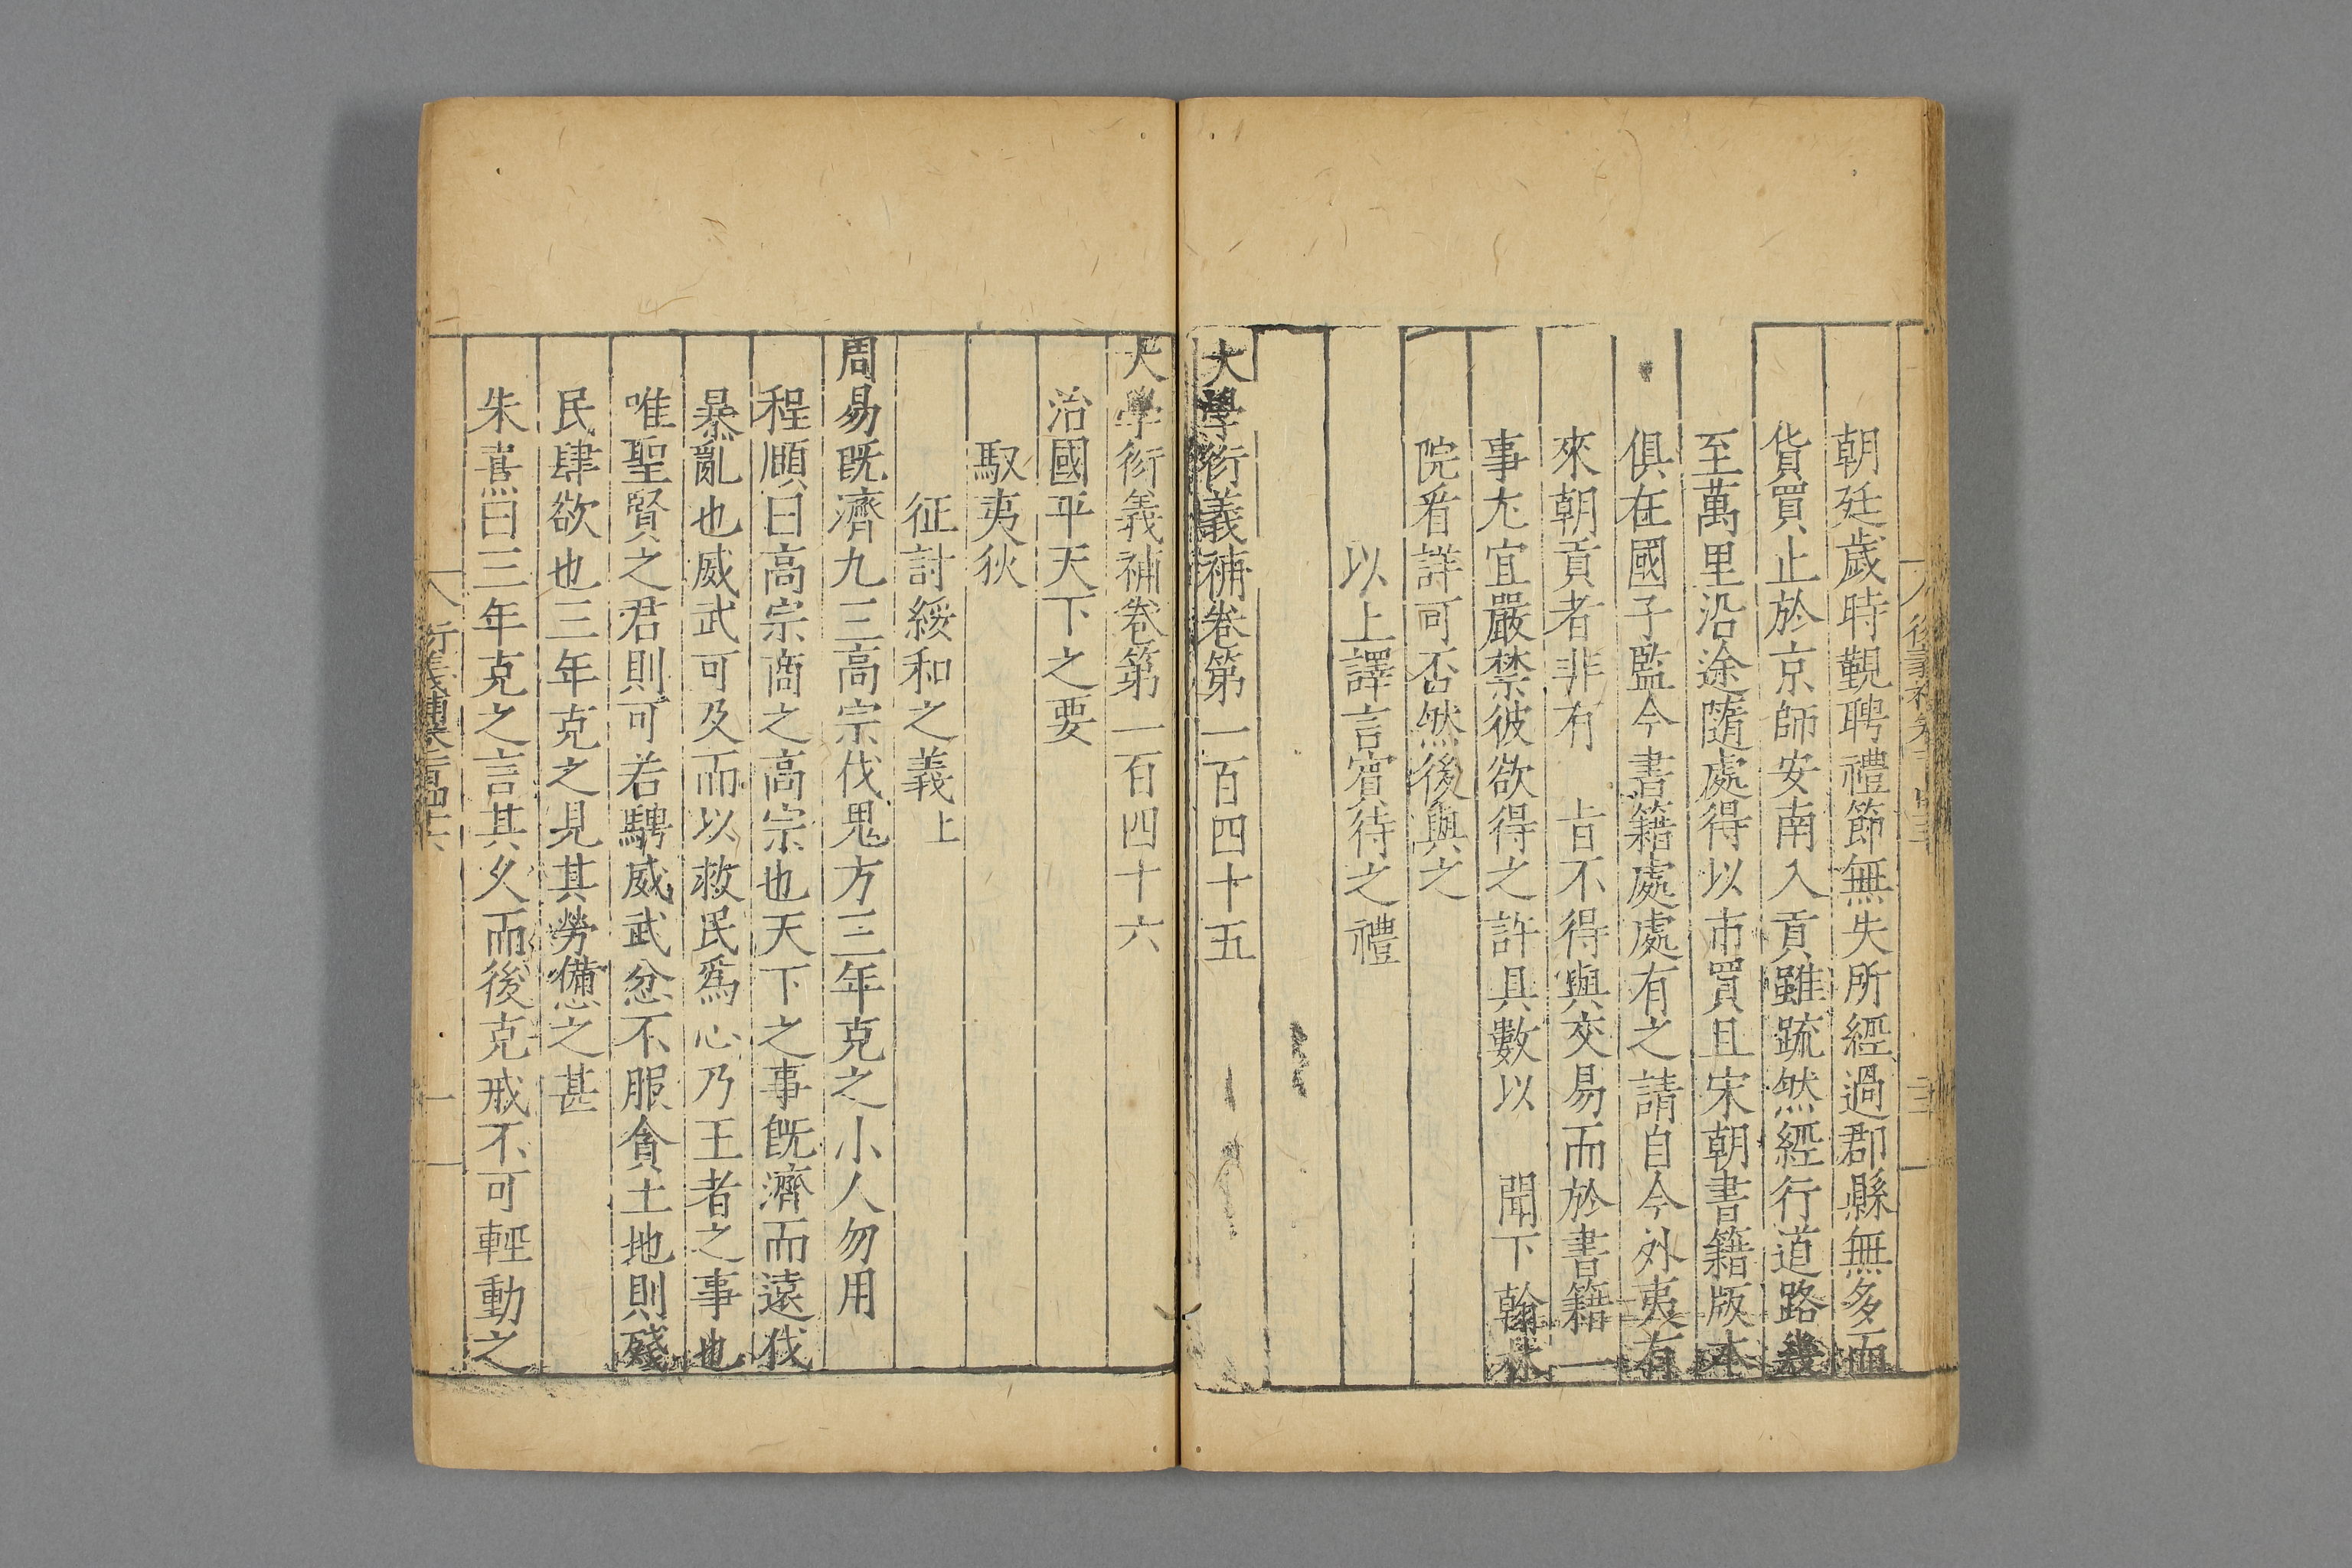 朝廷歲時覲聘禮節無失所經過郡縣無多而
貨買止於京師安南入貢雖䟽然經行道路幾
至萬里沿途隨處得以市買且宋朝書籍版本
俱在國子監今書籍處處有之請自今外夷有
來朝貢者非有　㫖不得與交易而於書籍一
事尤宜嚴禁彼欲得之許具數以　聞下翰林
院看詳可否然後與之
以上譯言賓待之禮
大學衍義補卷第一百四十五
大學衍義補卷第一百四十六
治國平天下之要
馭夷狄
征討綏和之義上
周易既濟九三高宗伐鬼方三年克之小人勿用
程頤曰高宗商之高宗也天下之事旣濟而遠伐
暴亂也威武可及而以救民爲心乃王者之事也
唯聖賢之君則可若騁威武忿不服貪土地則殘
民肆欲也三年克之見其勞憊之甚
朱熹曰三年克之言其久而後克戒不可輕動之